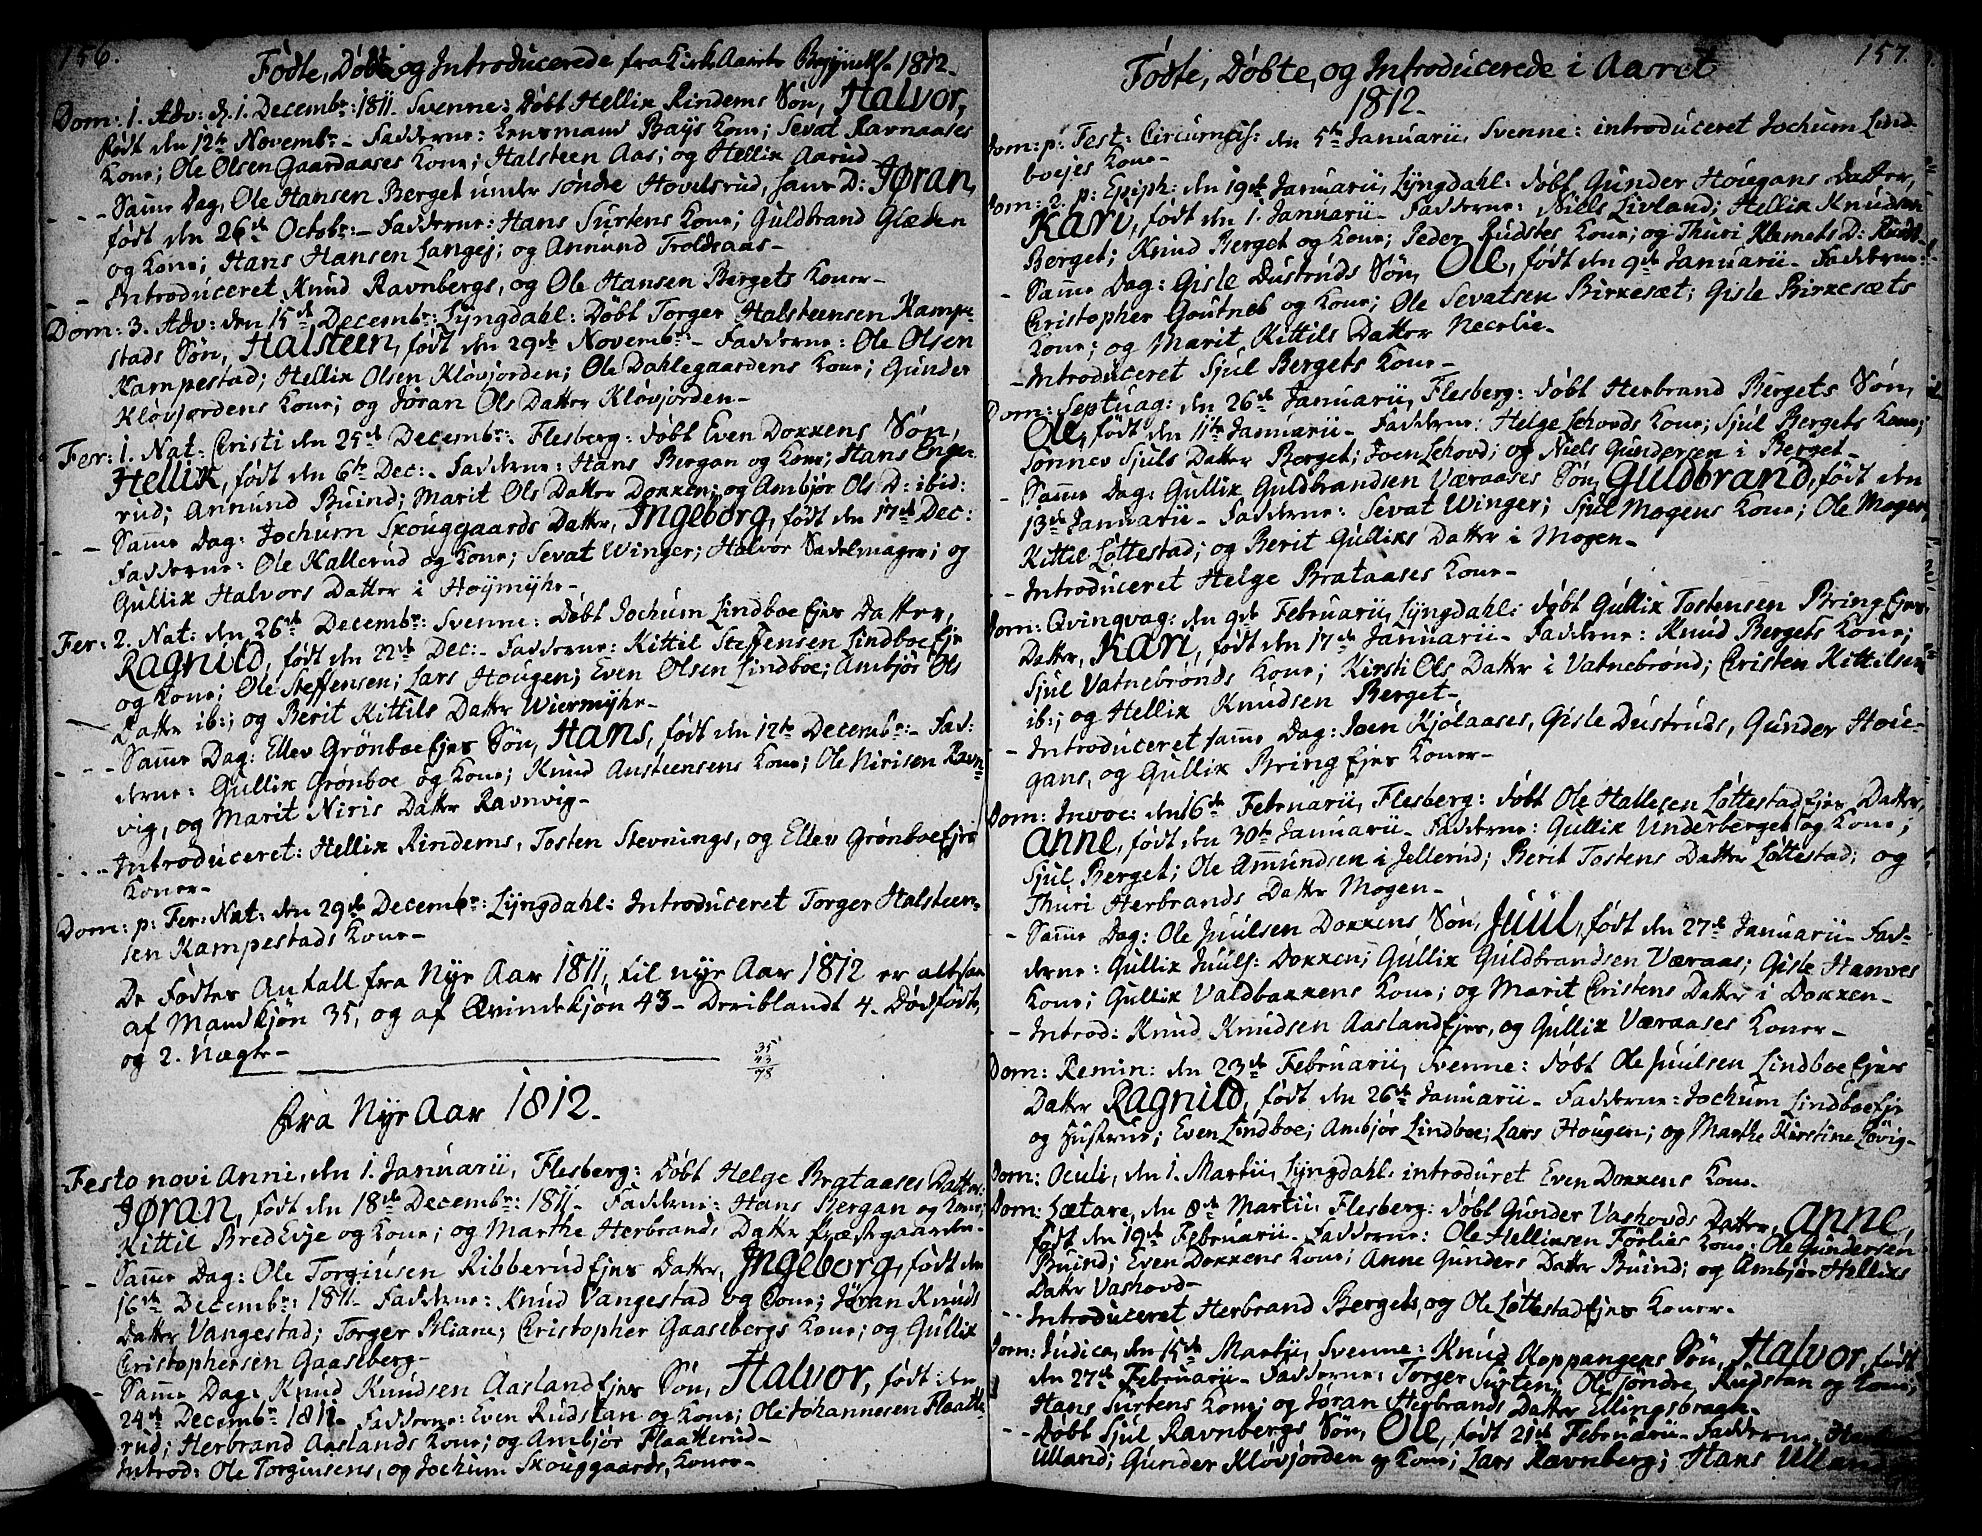 156.
Fødte, Døbte og Introducerede fra Kirke Aarets Begyndelse 1812.
Dom: 1. Adv: d. 1. Decembr: 1811. Svenne: Døbt Hellix Rindems Søn, Halvor,
født den 12te Novembr. Fadderne: Lensmand Bays Kone; Sevat Ravnaases
Kone; Ole Olsen Gaardaases Kone; Halsteen Aas; og Hellix Aarud.
- - - Samme Dag, Ole Hansen Berget under søndre Hovelsrud, hans D: Jøran,
født den 26de Octobr: - Fadderne: Hans Surtens Kone; Guldbrand Glæden
og Kone; Hans Hansen Langej; og Annund Troldsaas -
- - Introduceret Knud Ravnbergs, og Ole Hansen Bergets Koner -
Dom: 3. Adv: den 15de Decembr: Lyngdahl: Døbt Torger Halsteensen Kampe-
stads Søn, Halsteen, født den 29de Novembr. - Fadderne: Ole Olsen
Kampestad; Hellix Olsen Kløvjorden; Ole Dahlegaardens Kone; Gunder
Kløvjordens Kone; og Jøran Ols Datter Kløvjorden -
Fer: 1. Nat: Cristi den 25de Decembr: Flesberg: døbt Even Doxxens Søn,
Hellix, født den 6te Dec: - Fadderne: Hans Bergan og Kone; Hans Enge-
rud; Annund Buind; Marit Ols Datter Doxxen; og Ambjør Ols D: ibid:
- - Samme Dag: Jochum Skouggaards Datter, Ingeborg, født den 17de Dec:
Fadderne: Ole Kallerud og Kone; Sevat Winger; Halvor Sadelmager; og
Gullix Halvors Datter i Høymyhr -
Fer: 2. Nat: den 26de Decembr: Svenne: Døbt Jochum Lindboe Ejes Datter,
Ragnild, født den 22de Dec: - Fadderne: Kittil Steffensen Lindboe Eje
og Kone; Ole Steffensen; Lars Hougen; Even Olsen Lindboe; Ambjør Ols
Datter ib:; og Berit Kittils Datter Wiermyhr -
- - - Samme Dag: Ellev Grönboe Ejes Søn, Hans, født den 12te Decembr: - Fad:
derne: Gullix Grönboe og Kone; Knud Austeensens Kone; Ole Nirisen Ravn-
vig, og Marit Niris Datter Ravnvig -
- - - Introduceret: Hellix Rindems, Tosten Stevnings, og Ellev Grönboe Ejes
Koner -
Dom: p: Fer: Nat: den 29de Decembr: Lyngdahl: Introduceret Torger Halsteen-
sen Kampestads Kone -
De Fødtes Antall fra Nyt Aar 1811, til nyt Aar 1812 er altsaa
af Mandkjøn 35, og af Qvindekjøn 43 - Deriblandt 4. Dødfødte,
og 2. Uægte -
35
43
78
Fra Nyt Aar 1812.
Festo novi Anni, den 1. Januarii, Flesberg: Døbt Helge Brataases Datter:
Jøran, født den 18de Decembr: 1811. Fadderne: Hans Bergan og Kone;
Kittil Bred Evje og Kone; og Marthe Herbrands Datter Præstgaarden -
- - Samme Dag: Ole Torgiusen Ribberud Ejes Datter, Ingeborg, født den
16de Decembr: 1811 - Fadderne: Knud Vangestad og Cone; Jøran Knuds
Datter Vangestad; Torger Bliane; Christopher Gaasebergs Kone; og Gullix
Christophersen Gaaseberg -
- Samme Dag: Knud Knudsen Aasland Ejes Søn, Halvor, født: den
24de Decembr 1811 - Fadderne: Even Rudstan og Kone; Ole Johannesen Flaatte-
rud; Herbrand Aaslands Kone; og Ambjør Flaatterud -
Introd: Ole Torgiusens, og Jochum Skouggaards, Koner -
157.
Fødte, Døbte, og Introducerede i Aaret
1812.
Dom: p: Fest: Circumcis: den 5te Januarii, Svenne: introduceret Jochum Lind-
boejes Kone -
Dom: 2. p: Epiph: den 19de Januarii, Lyngdahl: døbt Gunder Hougans Datter,
Kari, født den 1. Januarii - Fadderne: Niels Livland; Hellix Knudsen
Berget; Knud Berget og Kone; Peder Rudstes Kone; og Thuri Klemets D:
- Samme Dag: Gisle Dustruds Søn, Ole, født den 9de Januarii - Fadderne:
Christopher Goutnes og Kone; Ole Sevatsen Birkesæt; Gisle Birkesæts
Kone; og Marit Kittils Datter Necelie -
- Introduceret Sjul Bergets Kone -
Dom: Septuag: den 26de Januarii, Flesberg: døbt Herbrand Bergets Søn,
Ole, født den 11te Januarii - Fadderne: Helge Lehovds Kone; Sjul Bergets Kone;
Sønnev Sjuls Datter Berget; Joen Lehovd; og Niels Gundersen i Berget -
- Samme Dag: Gullix Guldbrandsen Væraases Søn, Guldbrand, født den
13de Januarii - Fadderne: Sevat Winger; Sjul Mogens Kone; Ole Mogen;
Kittil Løttestad; og Berit Gullixs Datter i Mogen -
- - Introduceret Helge Brataases Kone -
Dom: Qvinqvag: den 9de Februarii, Lyngdahl: døbt Gullix Tostensen Bring Ejes
Datter, Kari, født den 17de Januarii - Fadderne: Knud Bergets Kone;
Sjul Vatnebrønds Kone; Kirsti Ols Datter i Vatnebrønd; Cristen Kittilsen
ib:; og Hellix Knudsen Berget -
- Introduceret samme Dag: Joen Kjølaases, Gisle Dustruds, Gunder Hou-
gans, og Gullix Bring Ejes Koner -
Dom: Invoc: den 16de Februarii, Flesberg: døbt Ole Hallesen Løttestad Ejes Datter,
Anne, født den 30te Januarii - Fadderne: Gullix Underberget og Kone;
Sjul Berget; Ole Amundsen i Jellerud; Berit Tostens Datter Løttestad; og
Thuri Herbrands Datter Mogen -
- Samme Dag: Ole Juulsen Doxxens Søn, Juul, født den 27de Januarii - Fad-
derne: Gullix Juuls: Doxxen; Gullix Guldbrandsen Væraas; Gisle Hanves
Kone; Gullix Valdbaxxens Kone; og Marit Cristens Datter i Doxxen -
- Introd: Knud Knudsen Aasland Ejes, og Gullix Væraases Koner -
Dom: Remin: den 23de Februarii, Svenne: døbt Ole Juulsen Lindboe Ejes
Datter Ragnild, født den 26de Januarii - Fadderne: Jochum Lindboe Eje
og Hustrue; Even Lindboe; Ambjør Lindboe; Lars Hougen; og Marthe Kirstine Løvig -
Dom: Oculi, den 1. Martii, Lyngdahl: introduret Even Doxxens Kone
Dom: Lætare, den 8de Martii, Flesberg: døbt Gunder Vashovds Datter, Anne,
født den 19de Februarii - Fadderne: Ole Hellixsen Førlies Kone; Ole Gundersen
Buind; Even Doxxens Kone; Anne Gunders Datter Buind; og Ambjør Hellixs
Datter Vashovd -
- - Introduceret Herbrand Bergets, og Ole Løttestad Ejes Koner -
Dom: Judica, den 15de Martii, Svenne: Knud Koppangens Søn, Halvor, født
den 27de Februarii - Fadderne: Torger Surten; Ole søndre Rudstan og Kone;
Hans Surtens Kone; og Jøran Herbrands Datter Ellingsbragh -
- - Døbt Sjul Ravnbergs Søn, Ole, født 21de Februarii - Fadderne:
Ulland; Gunder Kløvjorden og Kone; Lars Ravnberg; Hans Ulland